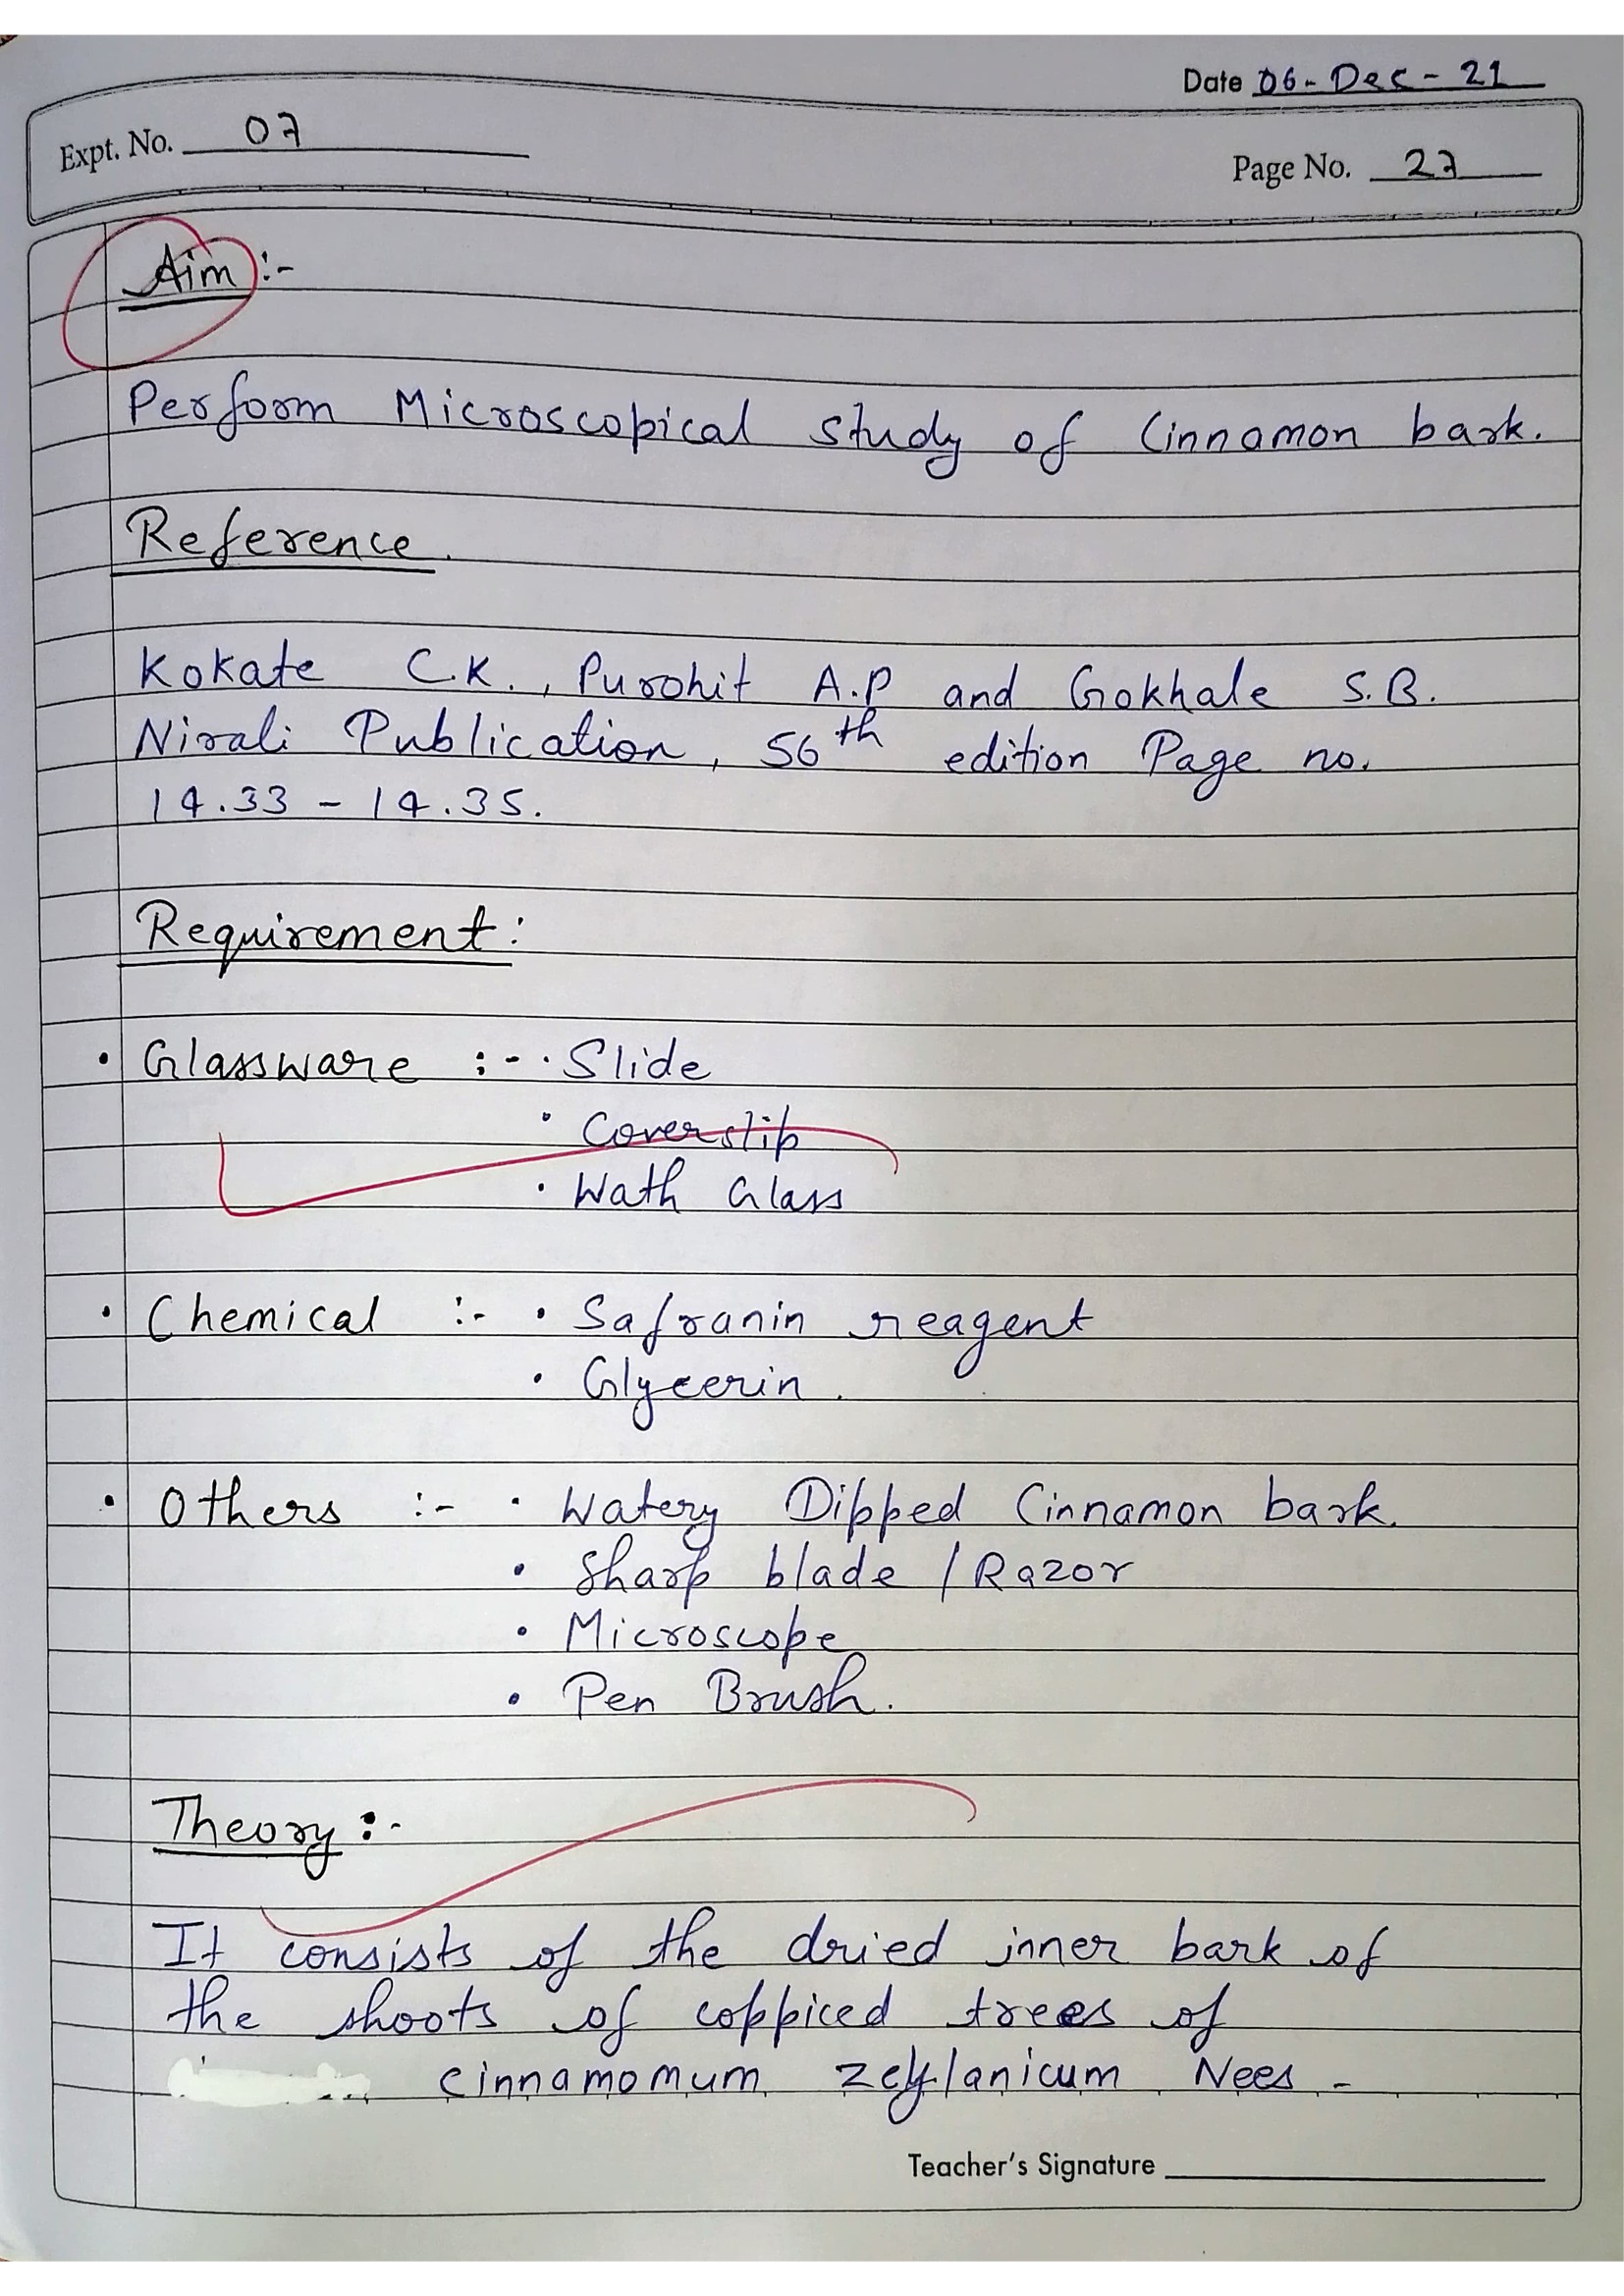 Date 06-Dec-21
Expt. No. 07
Page No. 27
Aim :-
Perform Microscopical study of Cinnamon bark.
Reference.
Kokate C.K., Purohit A.P and Gokhale S.B.
Nirali Publication, 56th edition Page no.
14.33 - 14.35.
Requirement :
• Glassware :- • Slide
• Coverslip
• Wath Glass
• Chemical :- • Safranin reagent
• Glycerin.
• Others :- • Watery Dipped Cinnamon bark.
• Sharp blade / Razor
• Microscope
• Pen Brush.
Theory :-
It consists of the dried inner bark of
the shoots of coppiced trees of
cinnamomum zeylanicum Nees -
Teacher's Signature